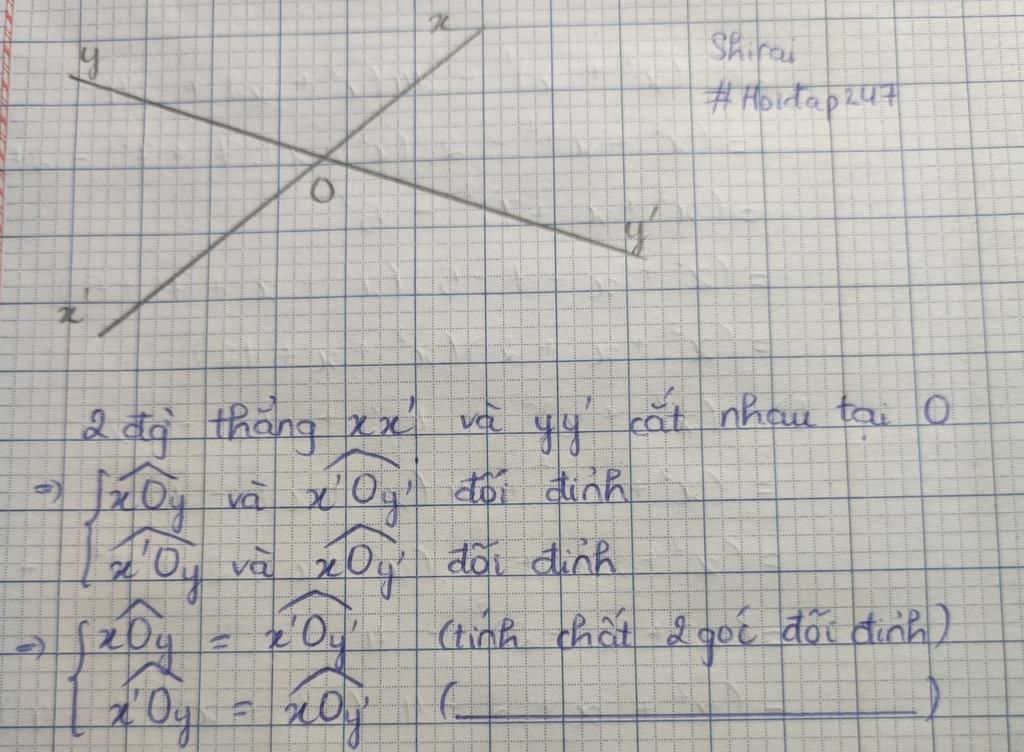 x
y
Shirai
#Hoidap247
O
y'
x'
2 đg thẳng xx' và yy' cắt nhau tại O
=> { xOy và x'Oy' đối đỉnh
x'Oy và xOy' đối đỉnh
=> { xOy = x'Oy' (tính chất 2 góc đối đỉnh)
x'Oy = xOy' (__________)